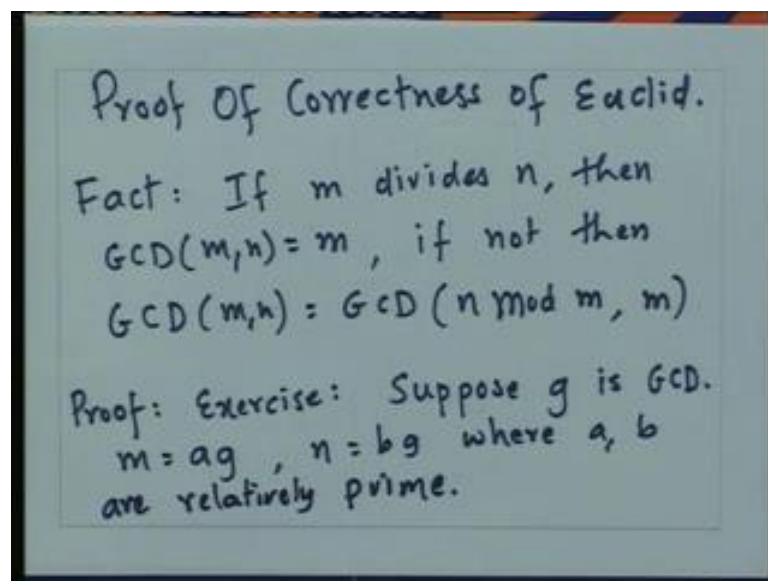 Proof Of Correctness of Euclid.
Fact: If m divides n, then
GCD(m,n) = m, if not then
GCD(m,n) = GCD(n mod m, m)
Proof: Exercise: Suppose g is GCD.
m = ag, n = bg where a, b
are relatively prime.